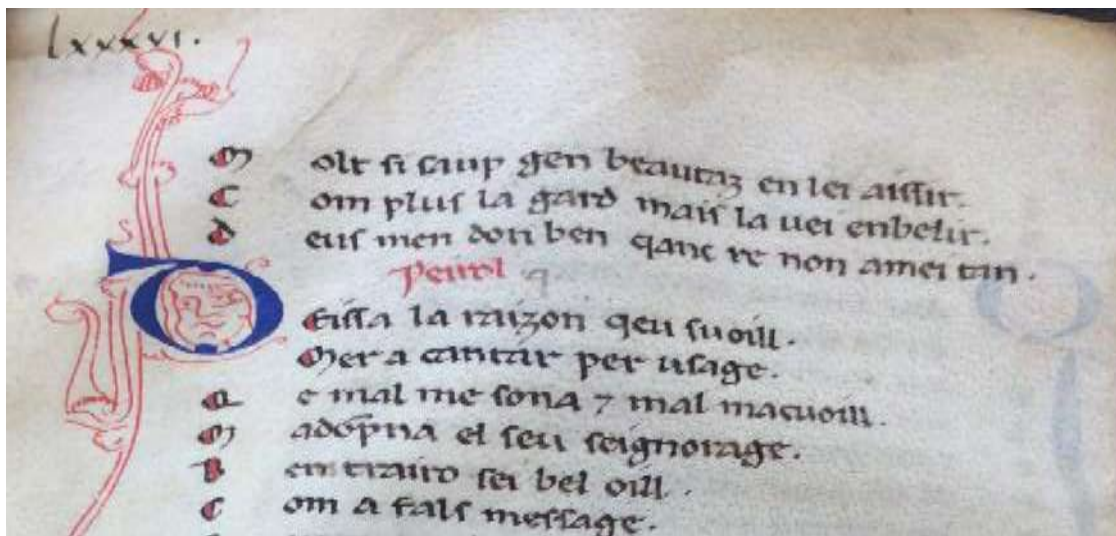 lxxxvi.
M olt si saup gen beautaz en lei aissir.
C om plus la gard mais la uei enbelir.
D eus men don ben qanc re non amei tan.
Peirol
D Eissa la raizon qeu suoill.
Mer a cantar per usage.
Q e mal me sona 7 mal macuoill.
M adōpna el seu seignorage.
B en trairo sei bel oill.
C om a fals message.